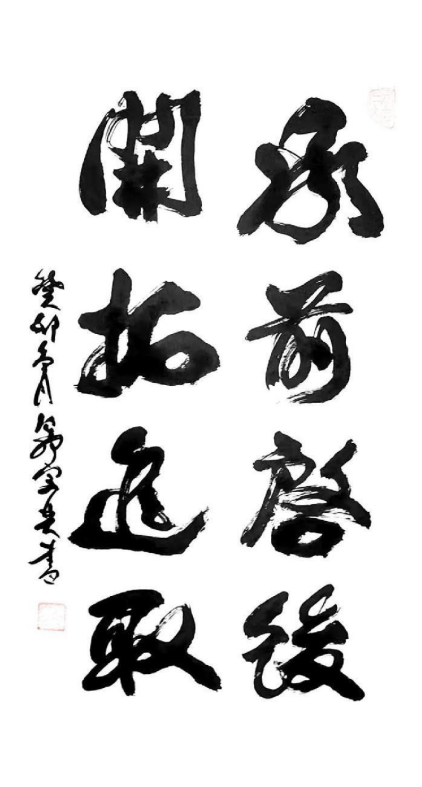 承前啓後
開拓進取
癸卯年月
書